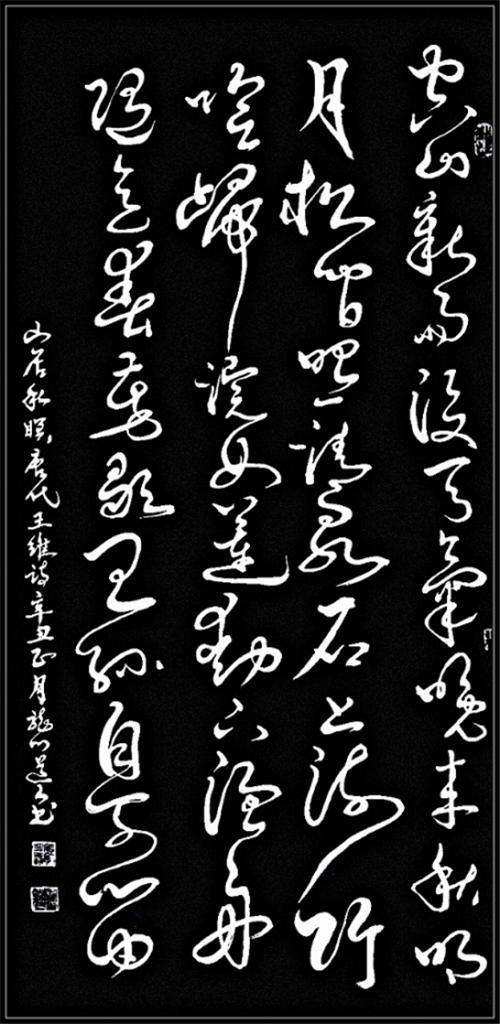 空山新雨後天氣晚來秋明
月松間照清泉石上流竹
喧歸浣女蓮動下漁舟
隨意春芳歇王孫自可留
山居秋暝唐代王維詩辛丑正月龍门道人书